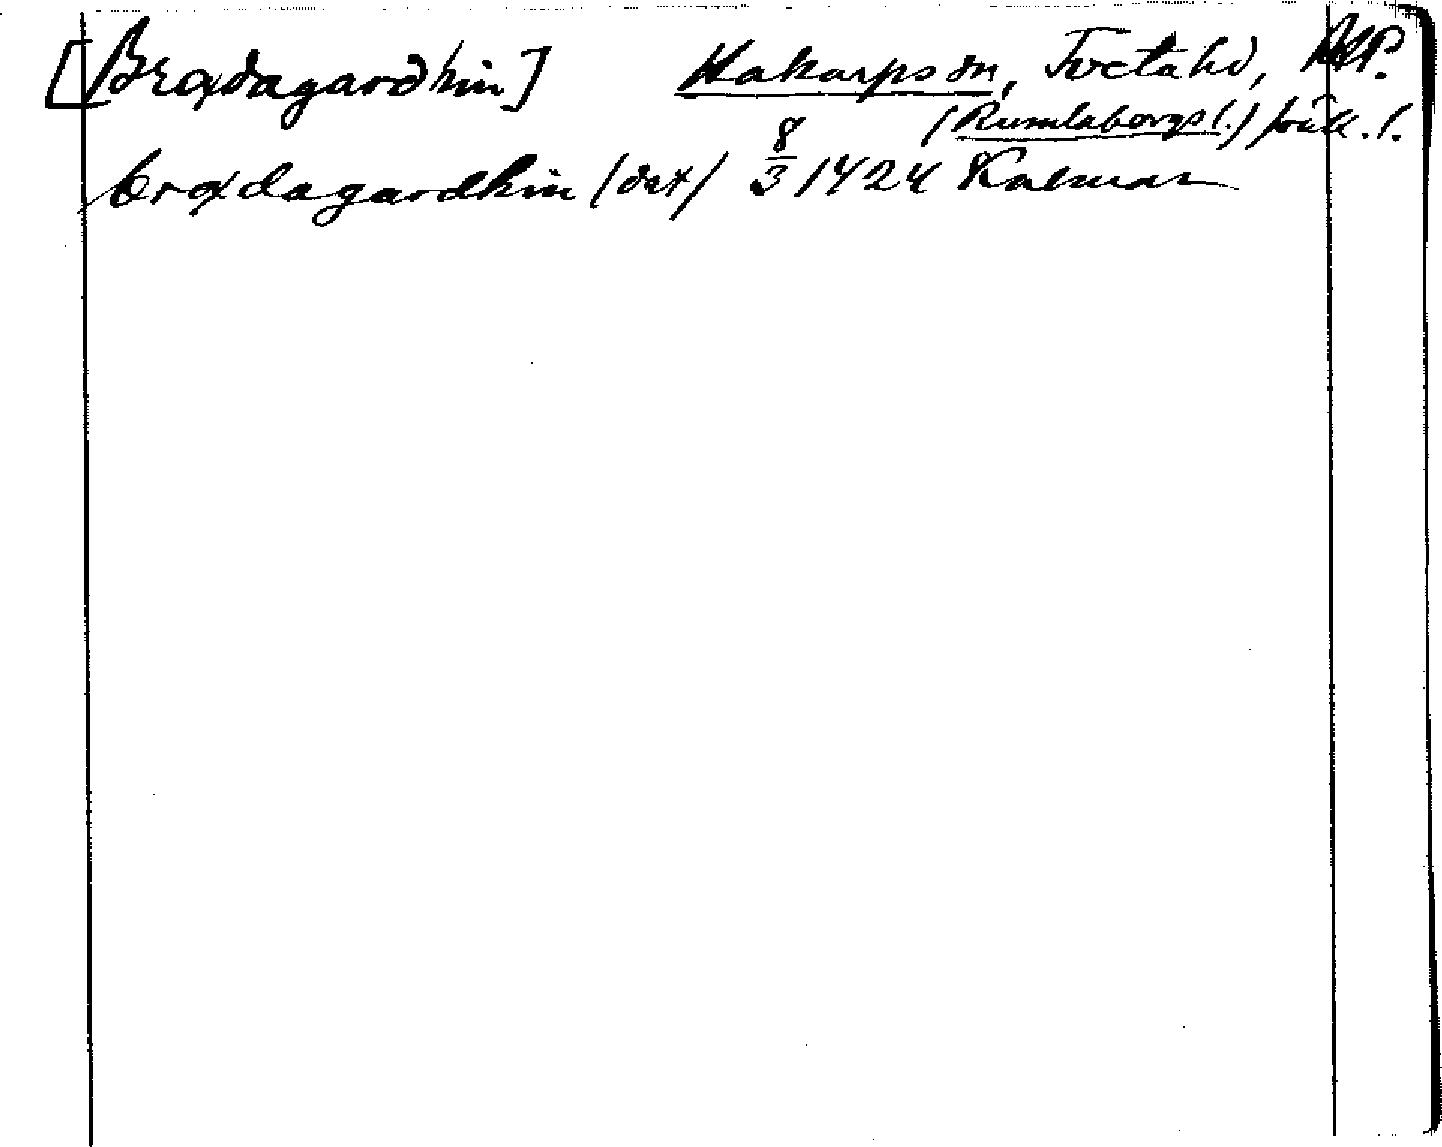 [Brøddagardhin] Hakarps sn, Tveta hd, RAP.
(Rumlaborgs l.) Jönk. l.
brøddagardhin (dat) 8/3 1424 Kalmar